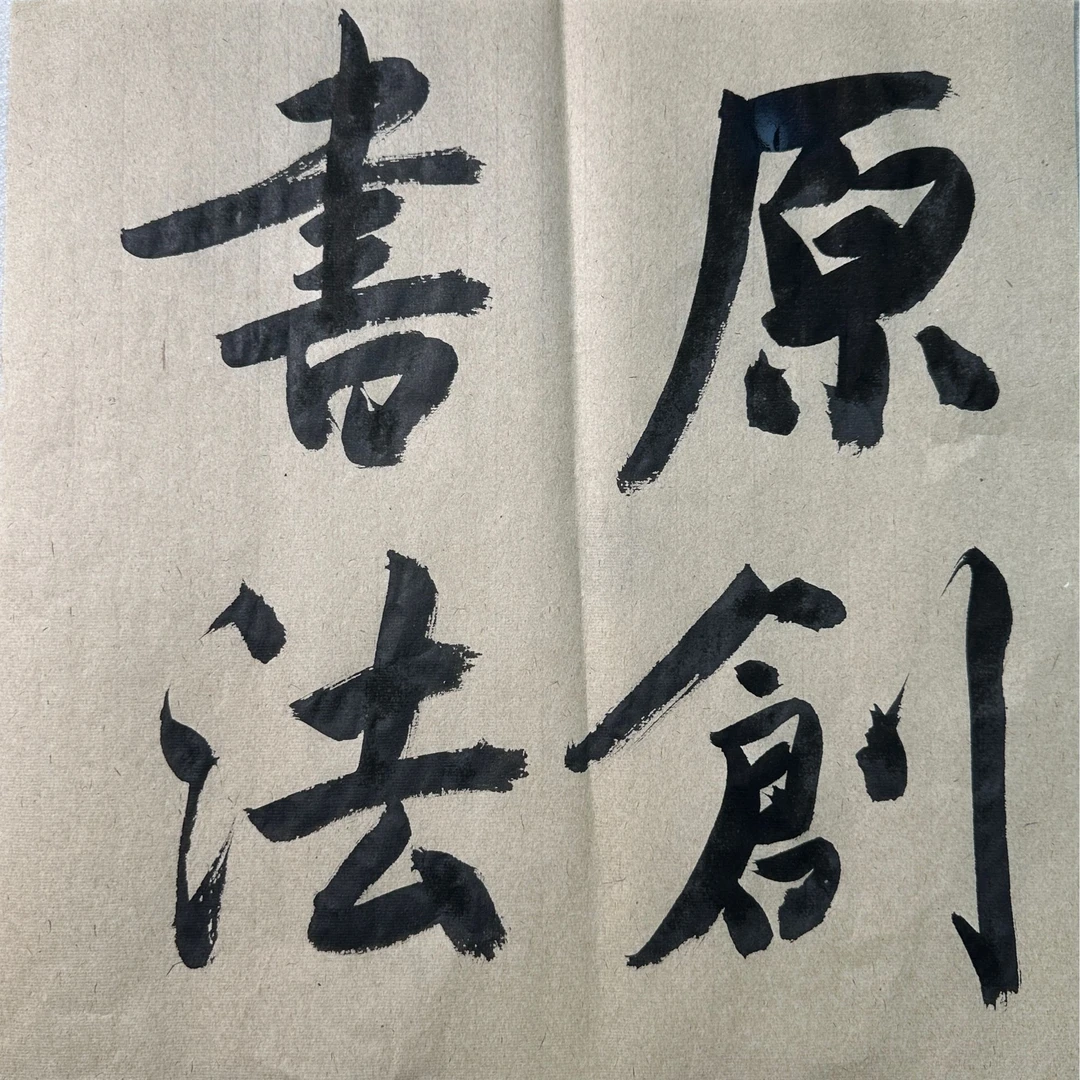 原創
書法